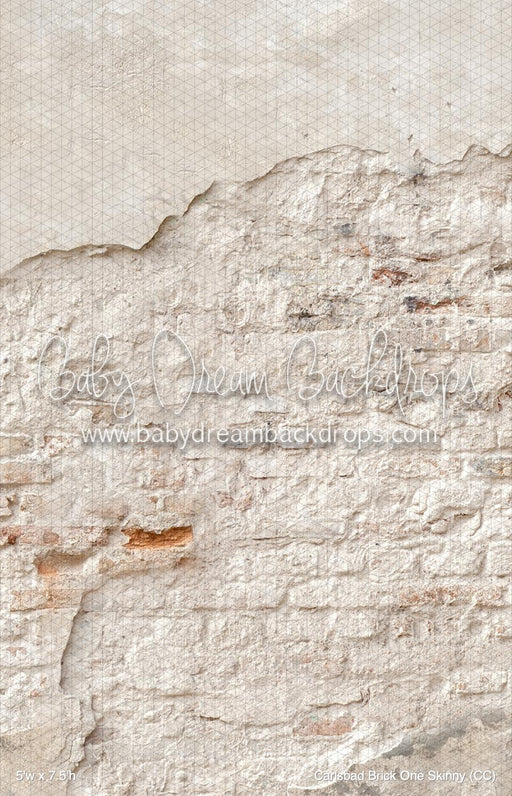 Baby Dream Backdrops
www.babydreambackdrops.com
5'w x 7.5'h
Carlsbad Brick One Skinny (CC)